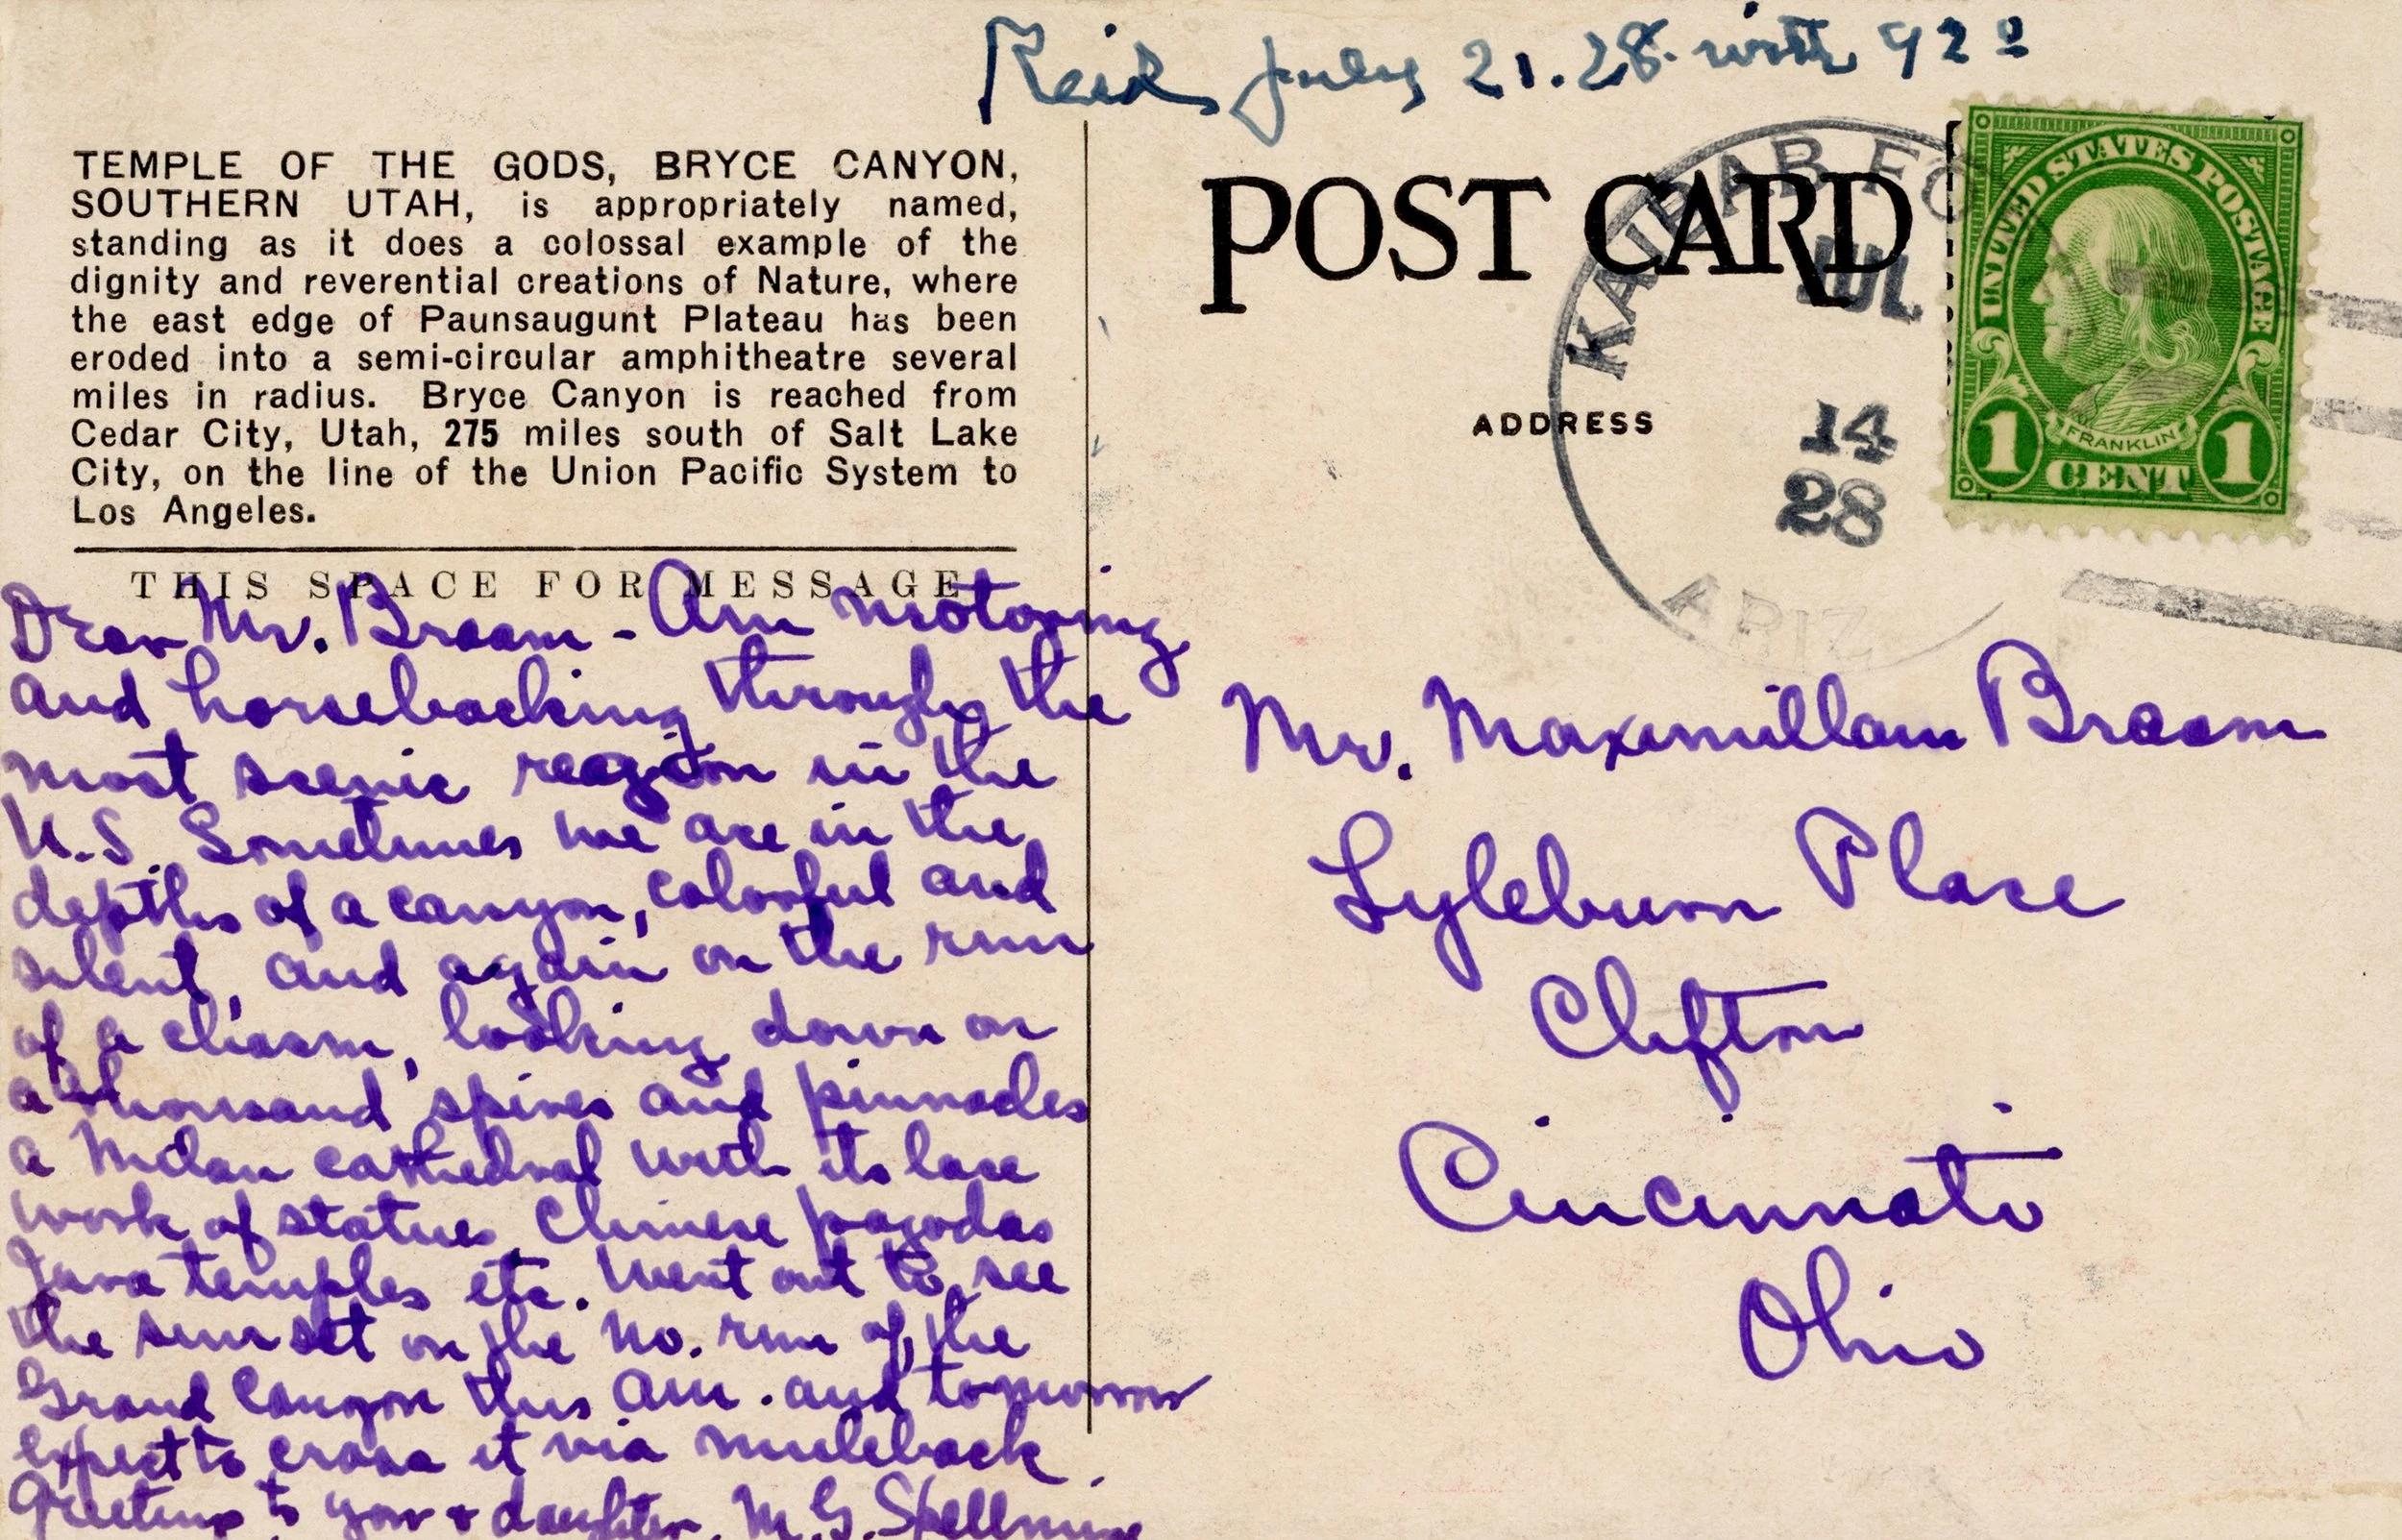 Recd July 21.28. with 92°
TEMPLE OF THE GODS, BRYCE CANYON,
SOUTHERN UTAH, is appropriately named,
standing as it does a colossal example of the
dignity and reverential creations of Nature, where
the east edge of Paunsaugunt Plateau has been
eroded into a semi-circular amphitheatre several
miles in radius. Bryce Canyon is reached from
Cedar City, Utah, 275 miles south of Salt Lake
City, on the line of the Union Pacific System to
Los Angeles.
THIS SPACE FOR MESSAGE
Dear Mr. Braam - Am motoring
and horsebacking through the
most scenic region in the
U.S. Sometimes we are in the
depths of a canyon, colorful and
silent, and again on the rim
of a chasm, looking down on
a thousand spires and pinnacles
a Milan cathedral with its lace
work of statues, Chinese pagodas
Java temples etc. Went out to see
the sun set on the No. rim of the
Grand Canyon this am. and tomorrow
expect to cross it via muleback.
Greetings to you & daughter. M.G.
POST CARD
ADDRESS
KAIBAB FO
JUL
14
28
ARIZ
UNITED STATES POSTAGE
FRANKLIN
1 CENT 1
Mr. Maximillam Braam
Lyleburn Place
Clifton
Cincinnati
Ohio